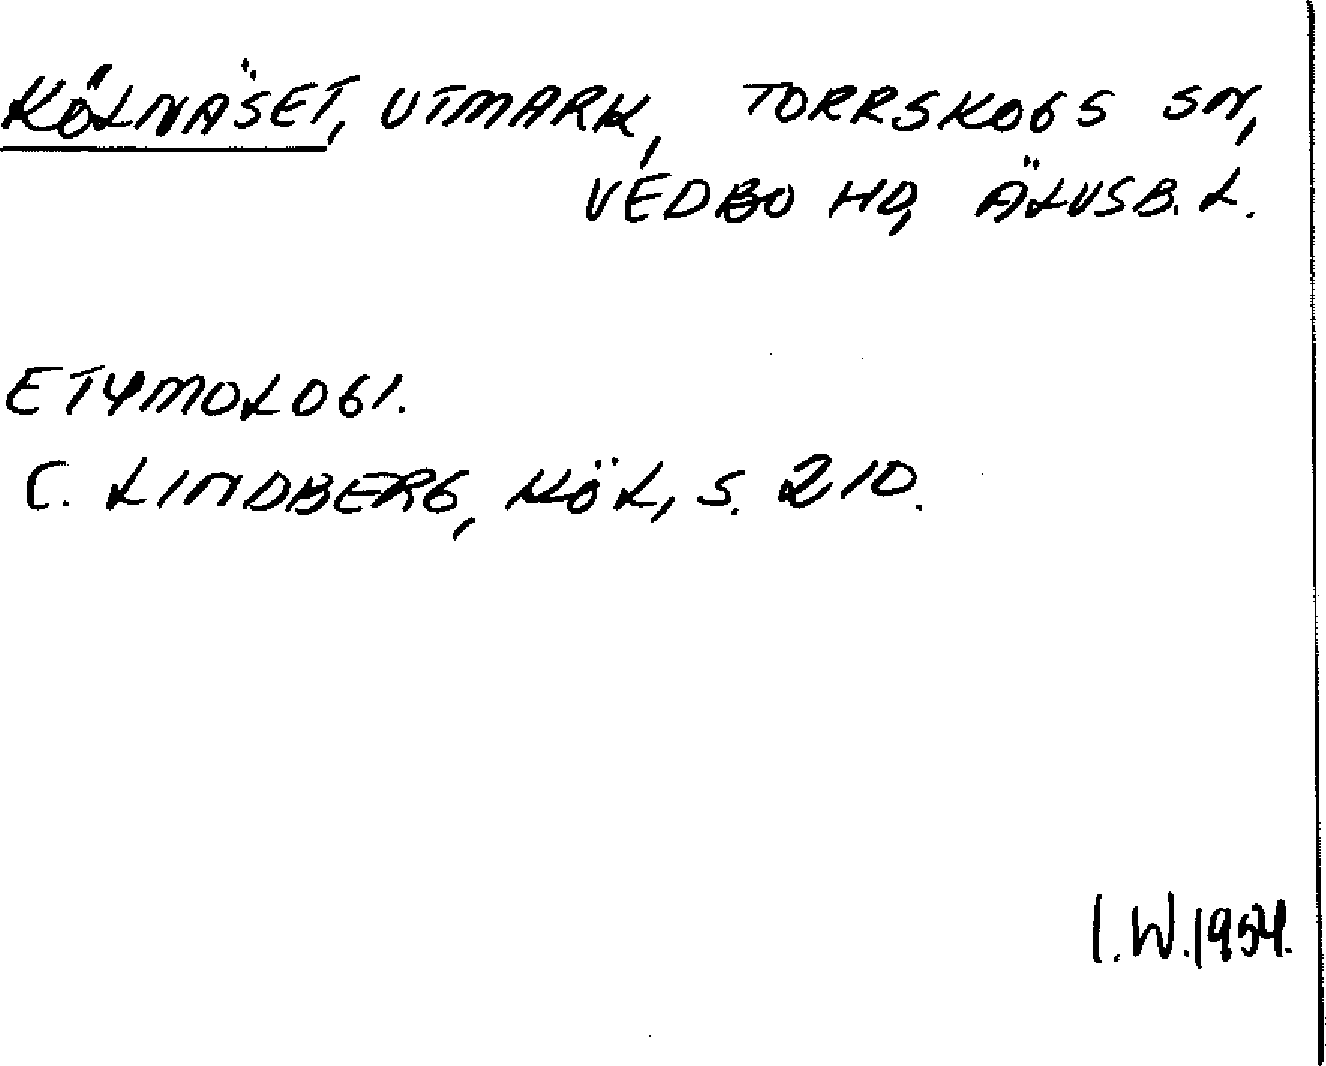 KÖLNÄSET, UTMARK, TORRSKOGS SN,
VEDBO HD, ÄLVSB. L.
ETYMOLOGI.
C. LINDBERG, KÖL, S. 210.
I.W.1954.